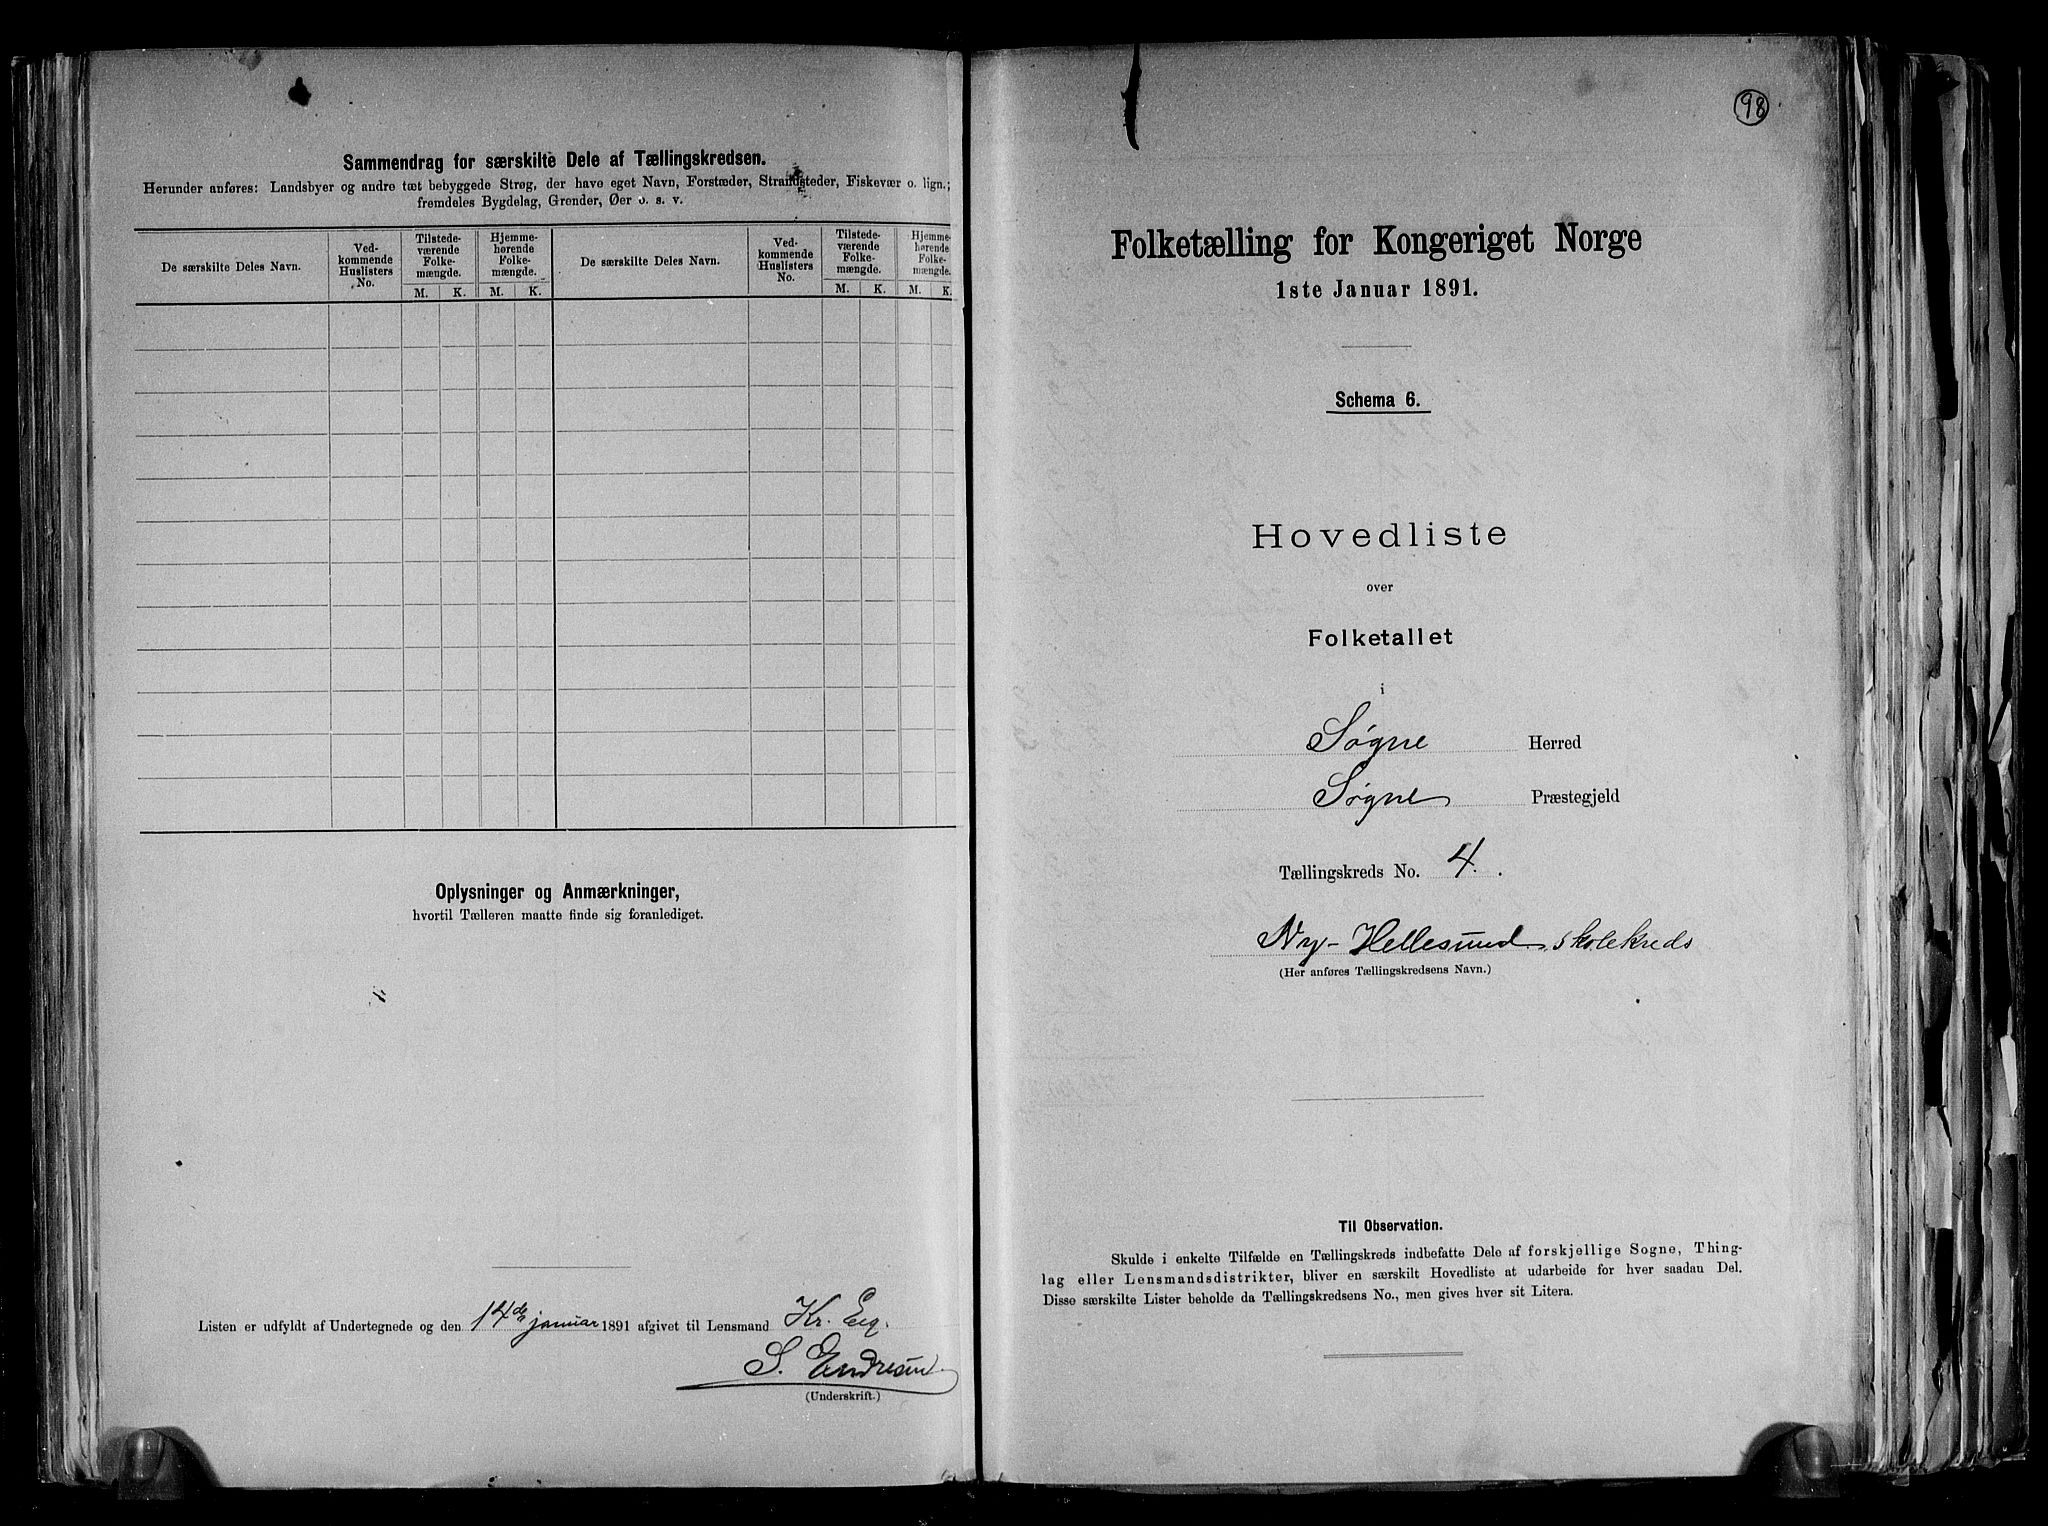 Sammendrag for særskilte Dele af Tællingskredsen.
Herunder anføres: Landsbyer og andre tæt bebyggede Strøg, der have eget Navn, Forstæder, Strandsteder, Fiskevær o. lign.;
fremdeles Bygdelag, Grender, Øer o. s. v.
De særskilte Deles Navn.
Ved-
kommende
Huslisters
No.
Tilstede-
værende
Folke-
mængde.
Hjemme-
hørende
Folke-
mængde.
De særskilte Deles Navn.
Ved-
kommende
Huslisters
No.
Tilstede-
værende
Folke-
mængde.
Hjemme-
hørende
Folke-
mængde.
M. K. M. K. M. K. M. K.
Oplysninger og Anmærkninger,
hvortil Tælleren maatte finde sig foranlediget.
Listen er udfyldt af Undertegnede og den 14de januar 1891 afgivet til Lensmand Kr. Eeg.
S. Endresen
(Underskrift.)
98
Folketælling for Kongeriget Norge
1ste Januar 1891.
Schema 6.
Hovedliste
over
Folketallet
i
Søgne Herred
Søgne Præstegjeld
Tællingskreds No. 4.
Ny-Hellesund skolekreds
(Her anføres Tællingskredsens Navn.)
Til Observation.
Skulde i enkelte Tilfælde en Tællingskreds indbefatte Dele af forskjellige Sogne, Thing-
lag eller Lensmandsdistrikter, bliver en særskilt Hovedliste at udarbeide for hver saadan Del.
Disse særskilte Lister beholde da Tællingskredsens No., men gives hver sit Litera.